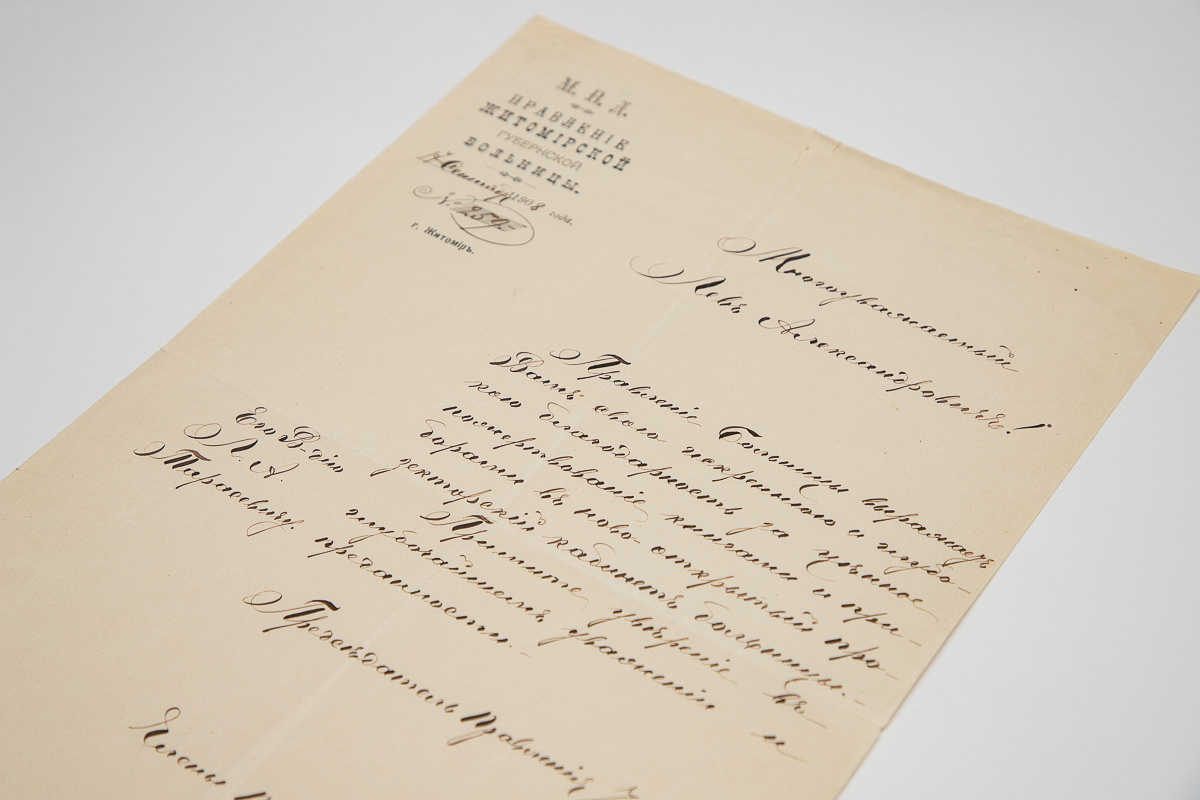 М. В. Д.
ПРАВЛЕНІЕ
ЖИТОМІРСКОЙ
ГУБЕРНСКОЙ
БОЛЬНИЦЫ.
17 Сентября 1908 года.
№ 2597
г. Житоміръ.
Многоуважаемый
Левъ Александровичъ!
Правленіе Больницы выражаетъ
Вамъ свою искреннюю и глубо-
кую благодарность за цѣнное
пожертвованіе книгами и при-
борами въ ново-открытый про-
зекторскій кабинетъ больницы.
Примите увѣреніе въ
глубочайшемъ уваженіи и
преданности.-
Его В-дію
Л. А.
Тарасевичу.
Предсѣдатель Правленія
Члены